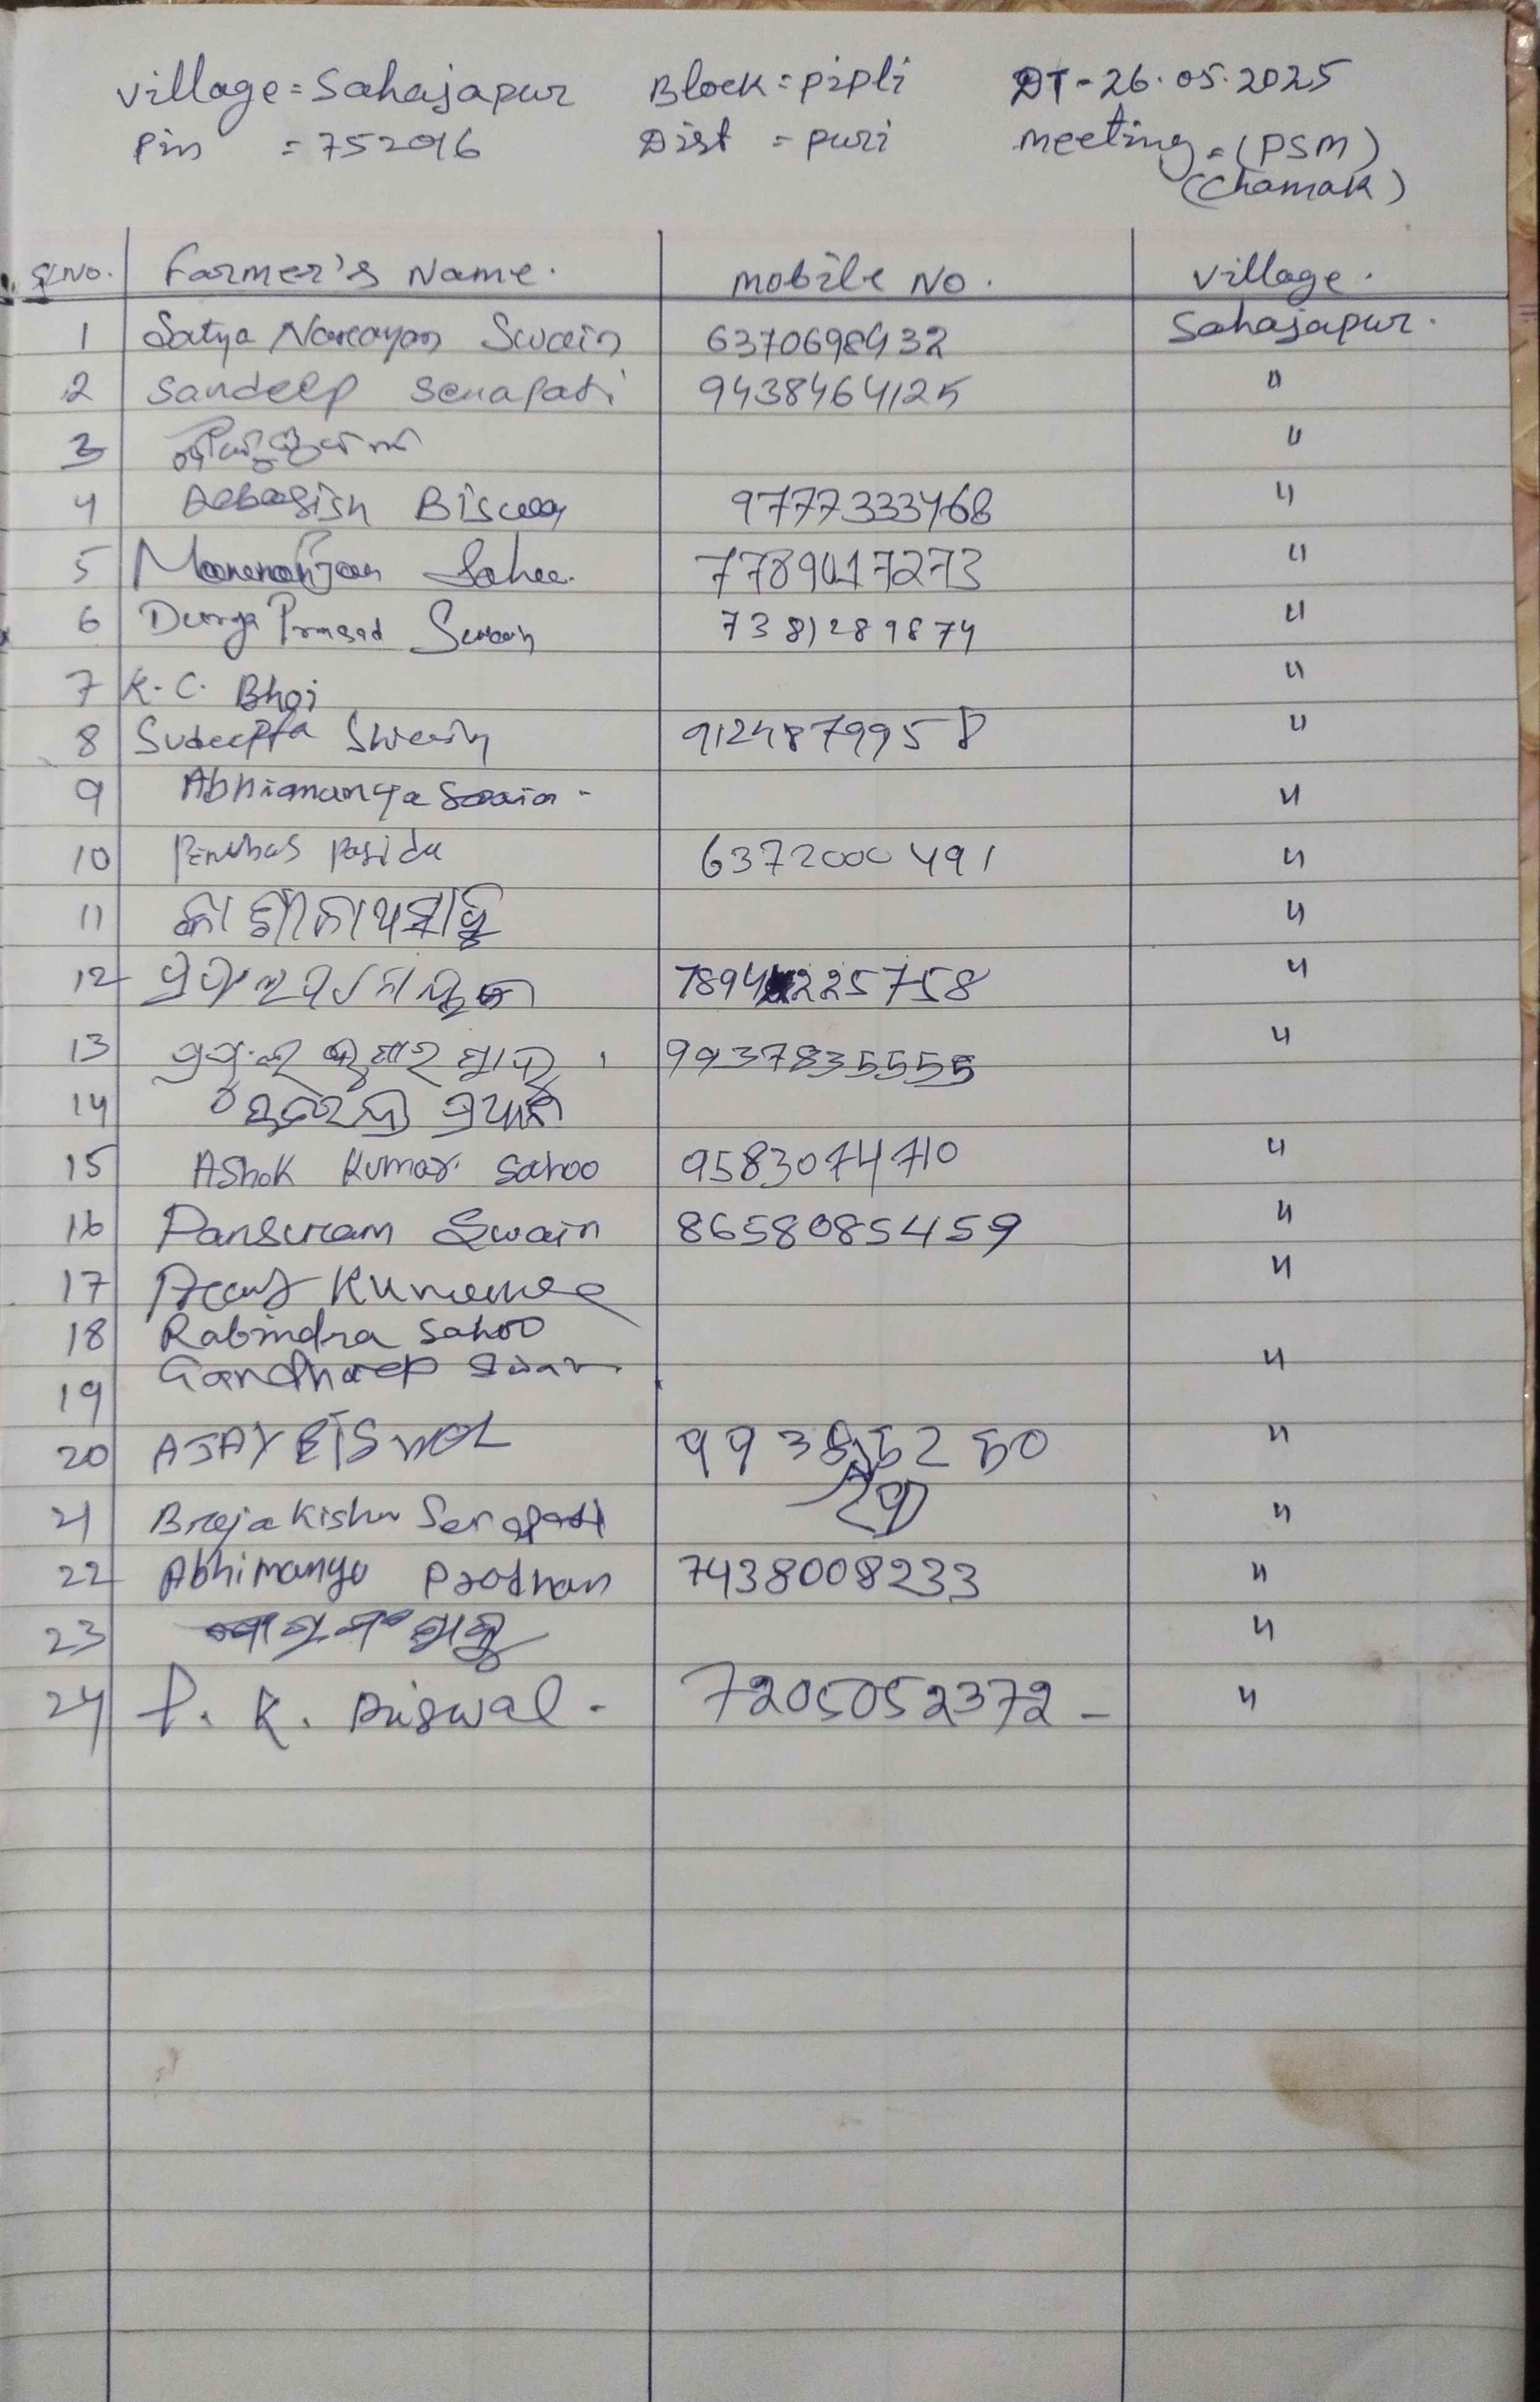 Village = Sahajapur Block = pipli DT - 26.05.2025
Pin = 752016 Dist = puri meeting = (PSM)
(Chamak)
Sl.No. Farmer's Name. Mobile No. Village.
1 Satya Narayan Swain 6370698432 Sahajapur.
2 Sandeep Senapati 9438464125 "
3 "
4 Debasish 9777333468 "
5 Sahu. 7789017273 "
6 Durga Prasad Swain 7381289874 "
7 K. C. Bhoi "
8 Sudeepta Swain 9124879958 "
9 Abhimanyu Swain - "
10 6372000491 "
11 "
12 7894225758 "
13 ସାହୁ 9937835555 "
14 ପ୍ରଧାନ
15 Ashok Kumar Sahoo 9583074710 "
16 Parsuram Swain 8658085459 "
17 "
18 Rabindra Sahoo
19 "
20 AJAY "
21 Braja Kishor Senapati "
22 Abhimanyu Pradhan 7438008233 "
23 ସାହୁ "
24 P. K. Biswal - 7205052372 - "